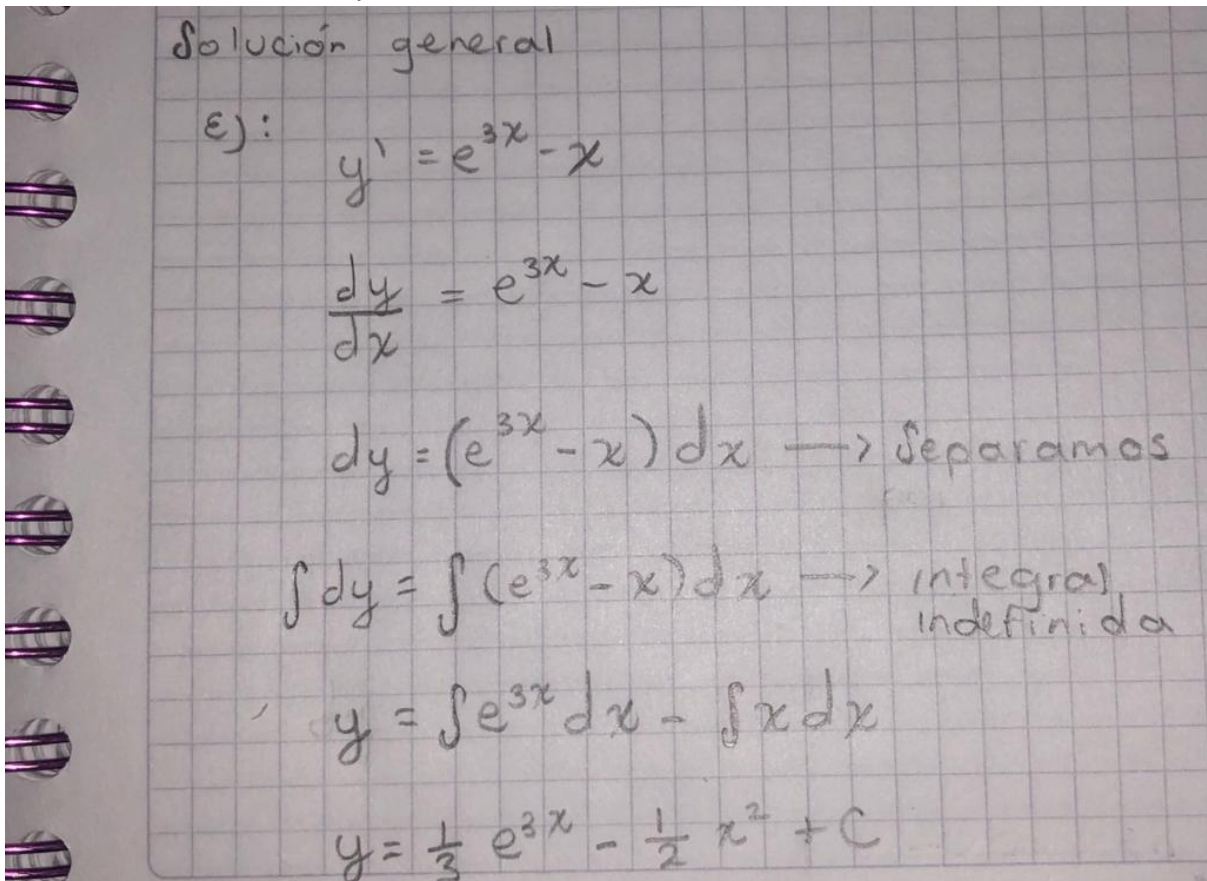 Solución general
E):
y' = e^{3x} - x
dy/dx = e^{3x} - x
dy = (e^{3x} - x) dx → Separamos
∫ dy = ∫ (e^{3x} - x) dx → integral
indefinida
y = ∫ e^{3x} dx - ∫ x dx
y = 1/3 e^{3x} - 1/2 x² + C